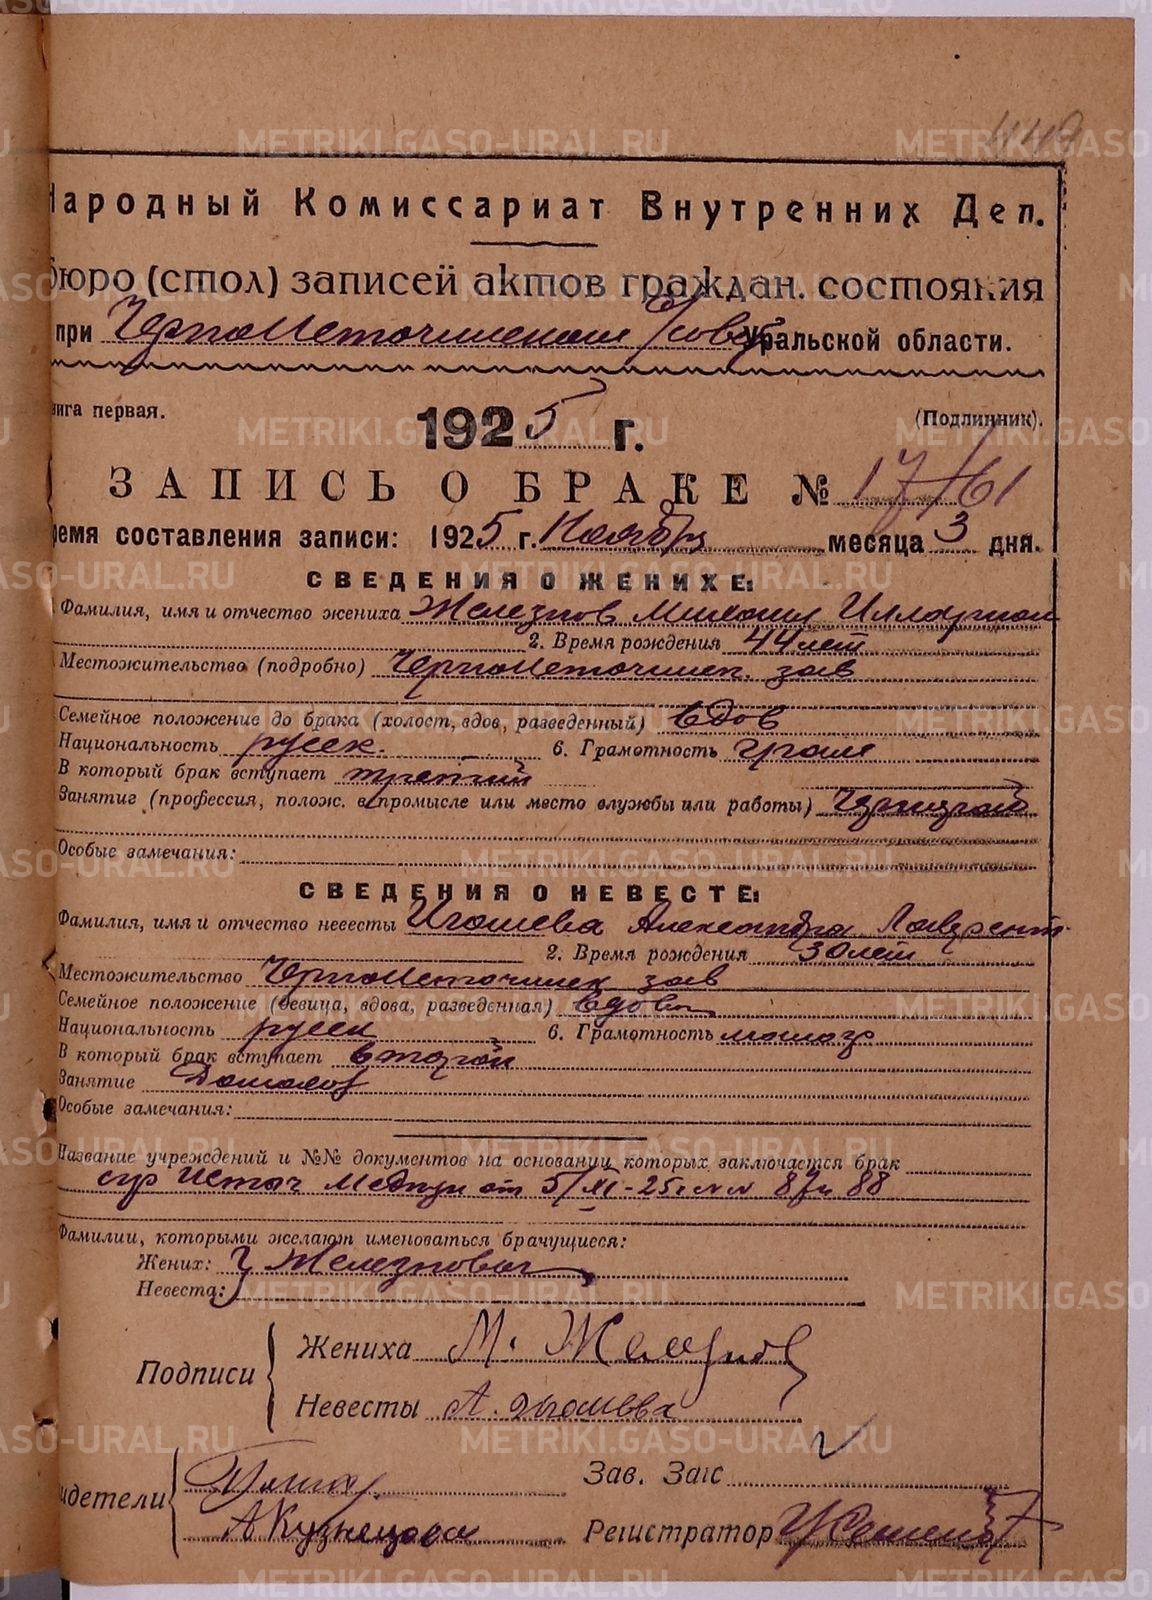 Народный Комиссариат Внутренних Дел.
бюро (стол) записей актов граждан. состояния
при Черноисточинском с/совет Уральской области.
нига первая. (Подлинник).
1925 г.
ЗАПИСЬ О БРАКЕ № 17/61
ремя составления записи: 1925 г. Ноября месяца 3 дня.
СВЕДЕНИЯ О ЖЕНИХЕ:
Фамилия, имя и отчество жениха Железнов Михаил Илларион
2. Время рождения 44 лет
Местожительство (подробно) Черноисточинск. зав
Семейное положение до брака (холост, вдов, разведенный) вдов
Национальность русск. 6. Грамотность грам
В который брак вступает третий
Занятие (профессия, полож. в промысле или место службы или работы)
Особые замечания:
СВЕДЕНИЯ О НЕВЕСТЕ:
Фамилия, имя и отчество невесты Игошева Александра Лаврент.
2. Время рождения 30 лет
Местожительство Черноисточинск зав
Семейное положение (девица, вдова, разведенная) вдова
Национальность русск 6. Грамотность малогр
В который брак вступает второй
Занятие Домохоз
Особые замечания:
Название учреждений и №№ документов на основании которых заключается брак
спр Источ Медпун от 5/XI-25 г NN 87 и 88
Фамилии, которыми желают именоваться брачущиеся:
Жених: Железновы
Невеста:
Подписи
Жениха М. Железнов
Невесты А. Игошева
идетели
Зав. Загс
А Кузнецова
Регистратор